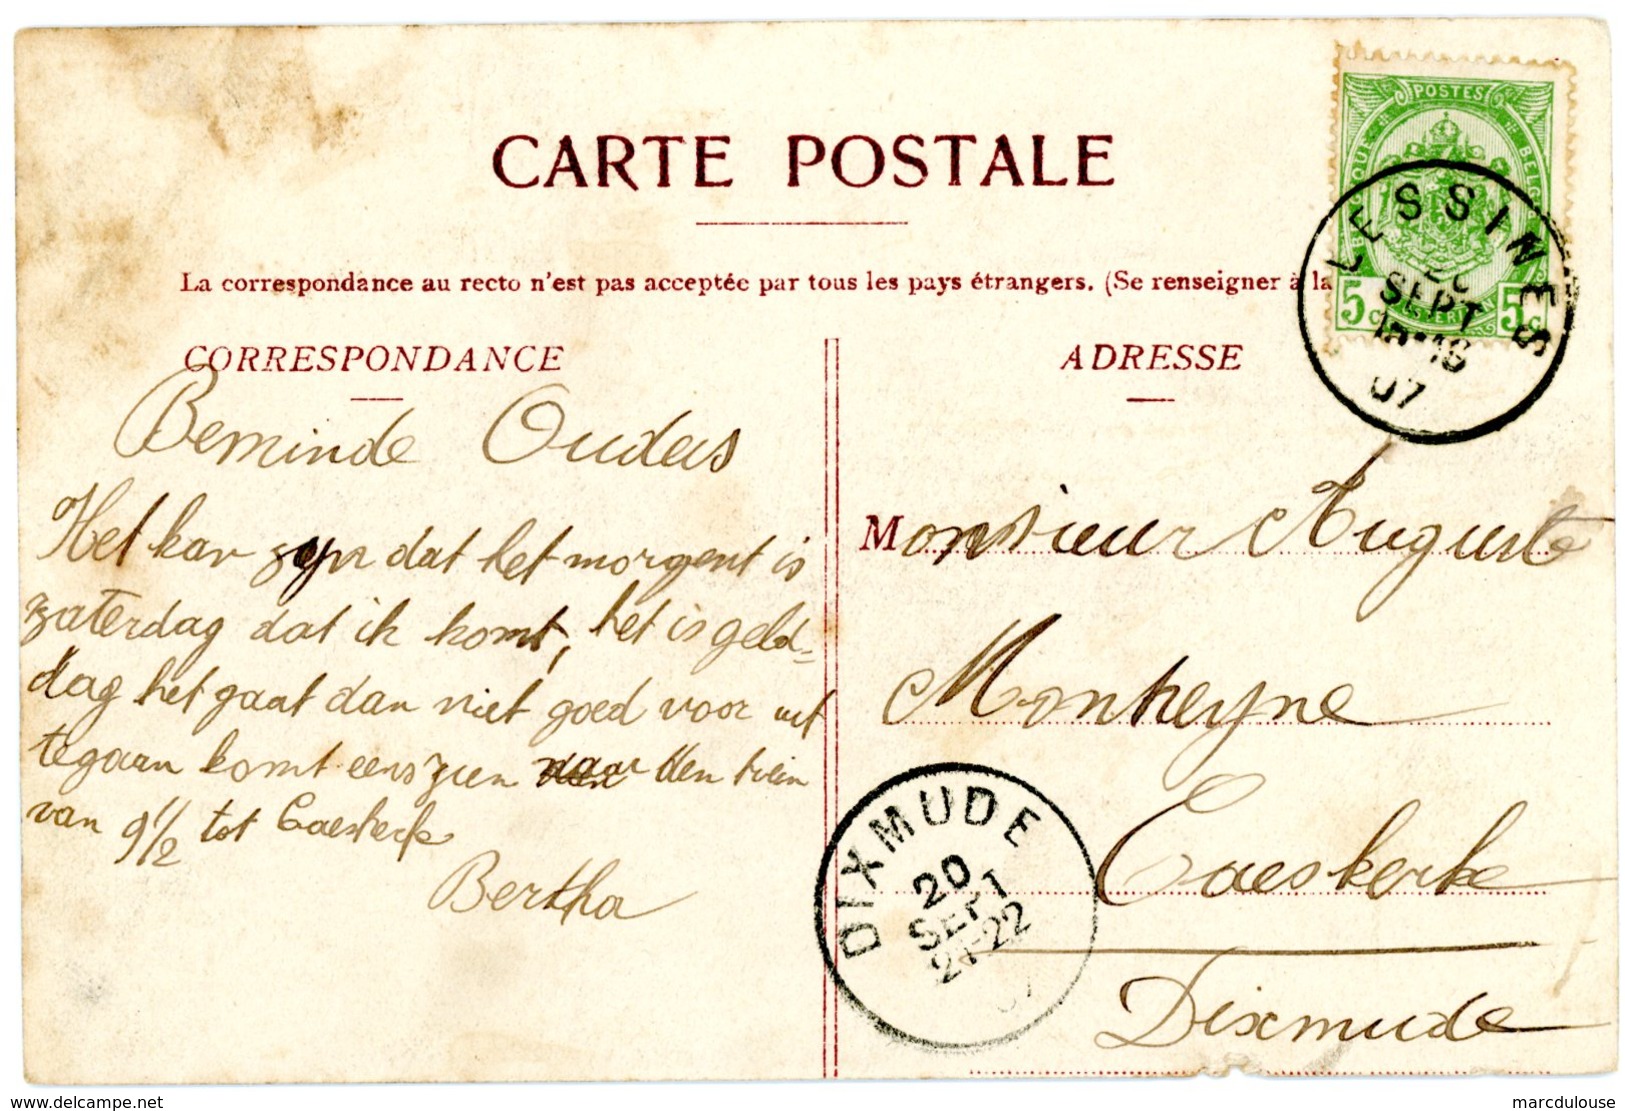 CARTE POSTALE
La correspondance au recto n'est pas acceptée par tous les pays étrangers. (Se renseigner à la
POSTES
BELGIQUE
5c 5c
LESSINES
SEPT
07
CORRESPONDANCE
Beminde Ouders
Het kan zijn dat het morgent is
zaterdag dat ik komt, het is geld=
dag het gaat dan niet goed voor uit
tegaan komt eens zien naar den trein
van 9 1/2 tot Caeskerke
Bertha
ADRESSE
Monsieur Auguste
Monheyne
Caeskerke
Dixmude
DIXMUDE
20
SEPT
21-22
07
delcampe.net
marcdulouse